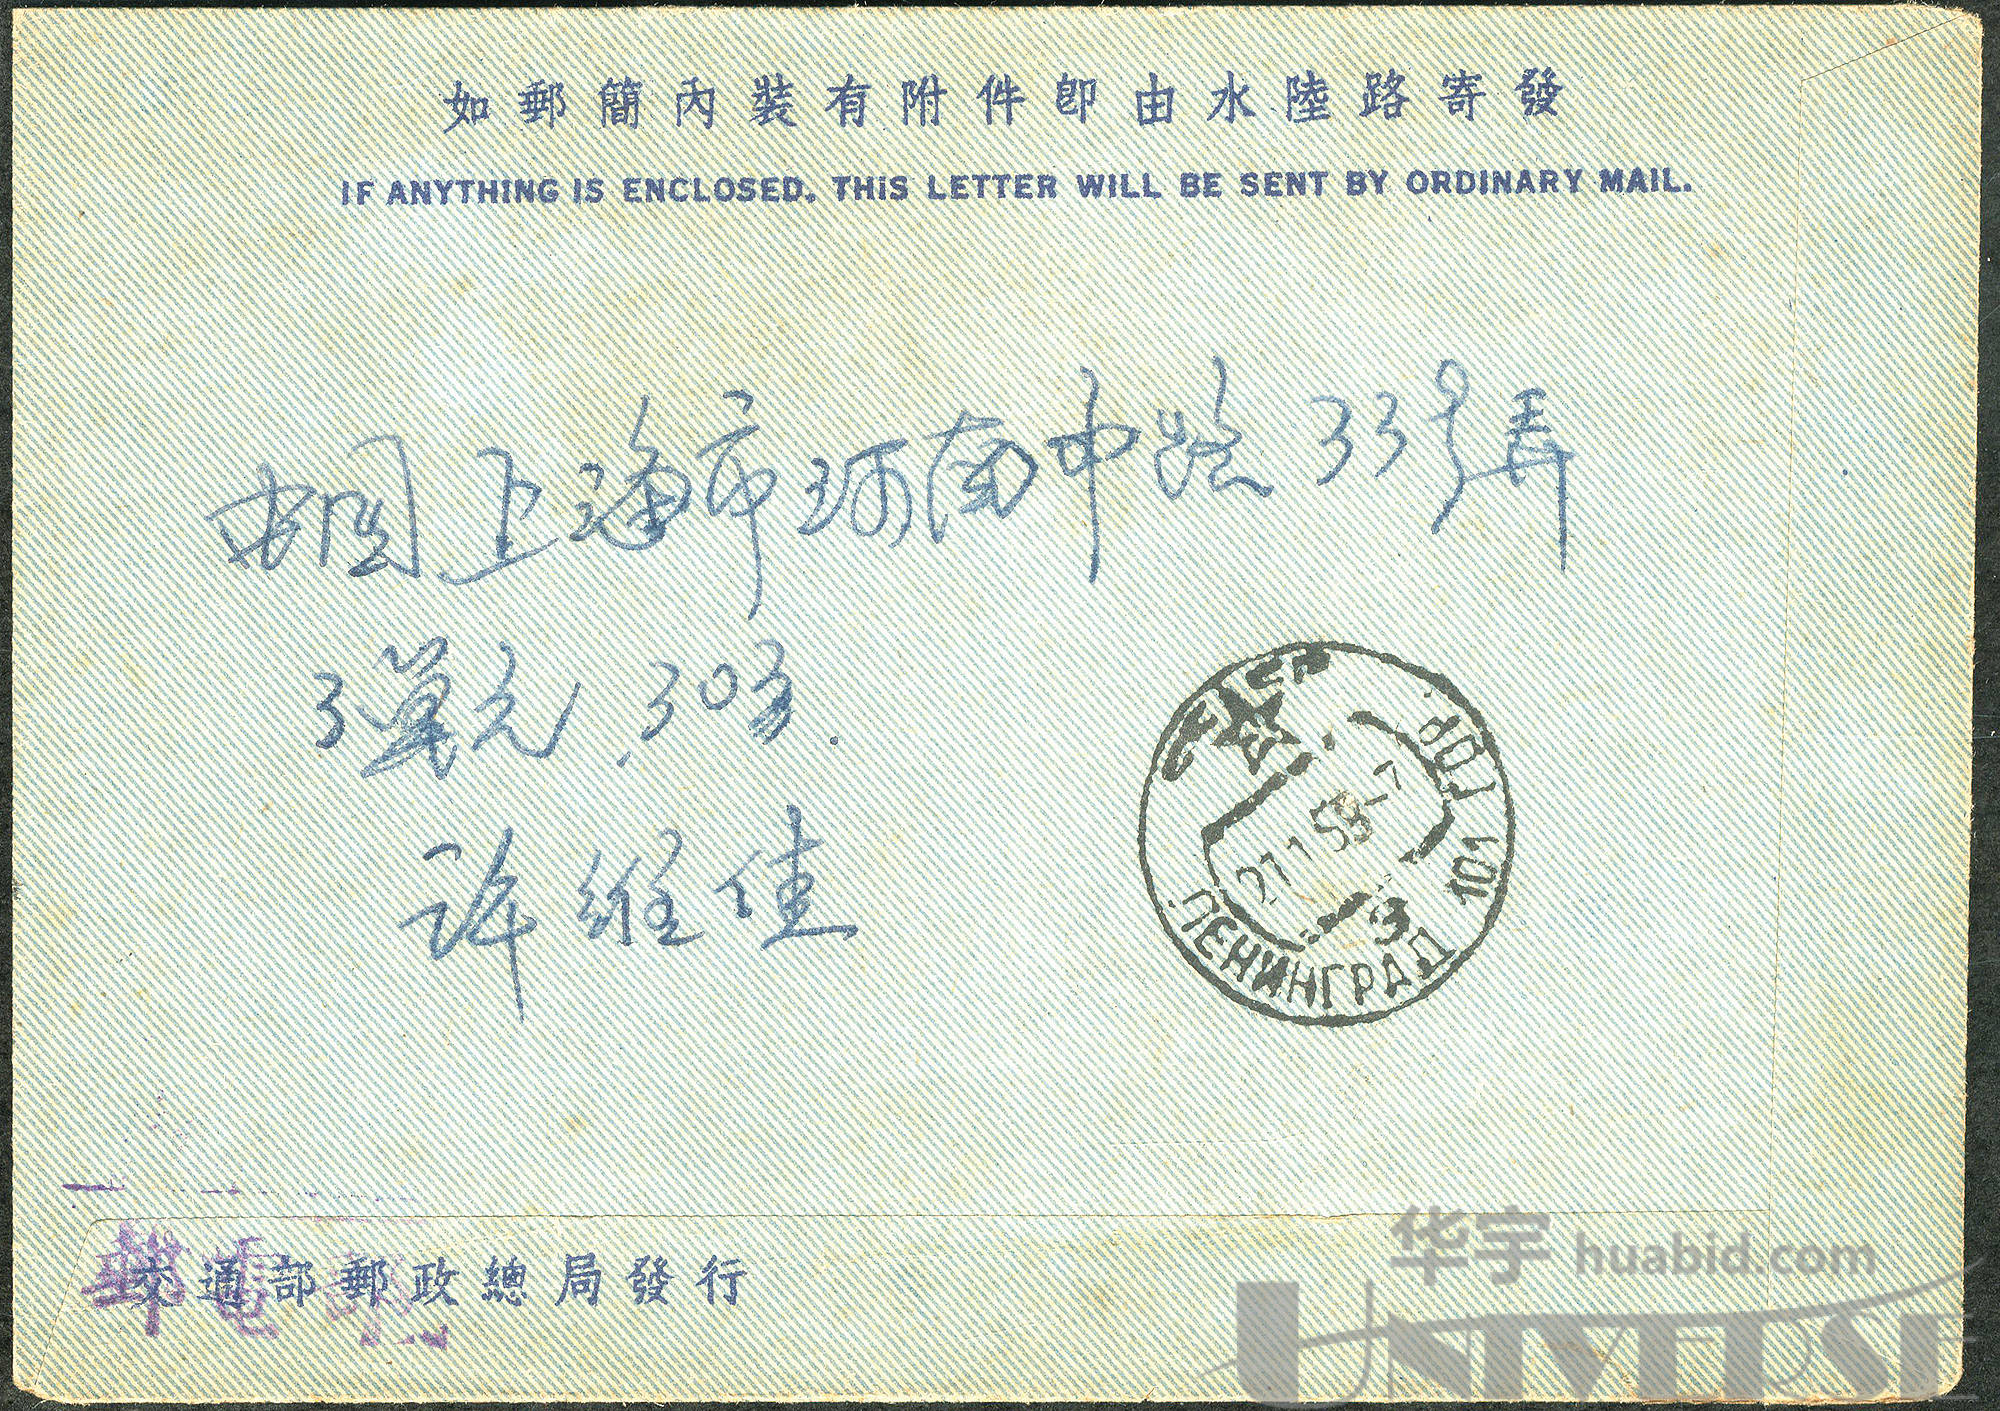 如郵簡內裝有附件即由水陸路寄發
IF ANYTHING IS ENCLOSED, THIS LETTER WILL BE SENT BY ORDINARY MAIL.
中国上海市河南中路33号弄
30
许维佳
СССР
ПОЧ 101
21 1 53-7
ЛЕНИНГРАД
交通部郵政總局發行
華宇 huabid.com
UNIVERSE